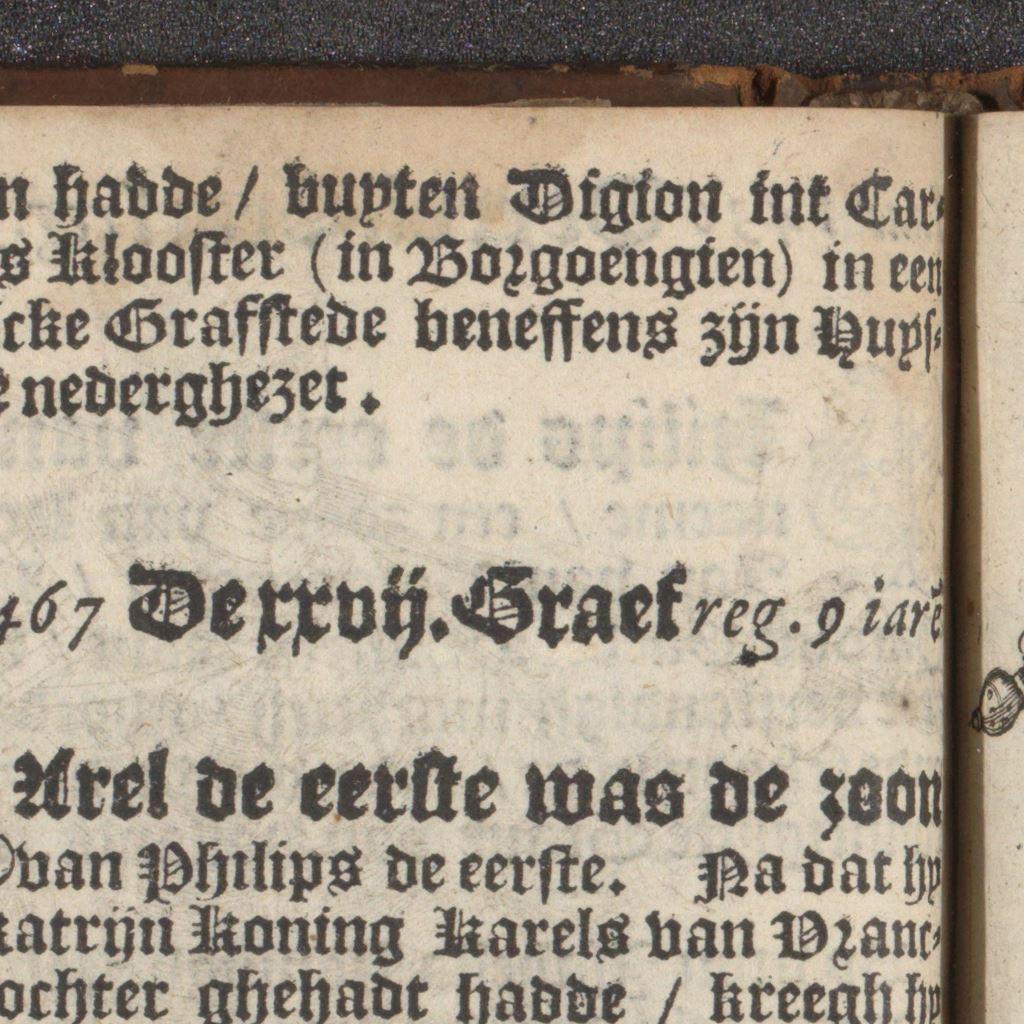 n hadde / buyten Digion int Car-
s Klooster (in Borgoengien) in een
cke Grafstede beneffens zijn Huys-
e nederghezet.
467 De xxvij. Graef reg. 9 iarẽ
Arel de eerste was de zoon
van Philips de eerste. Na dat hy
katrijn Koning Karels van Vranc-
ochter ghehadt hadde / kreegh hy